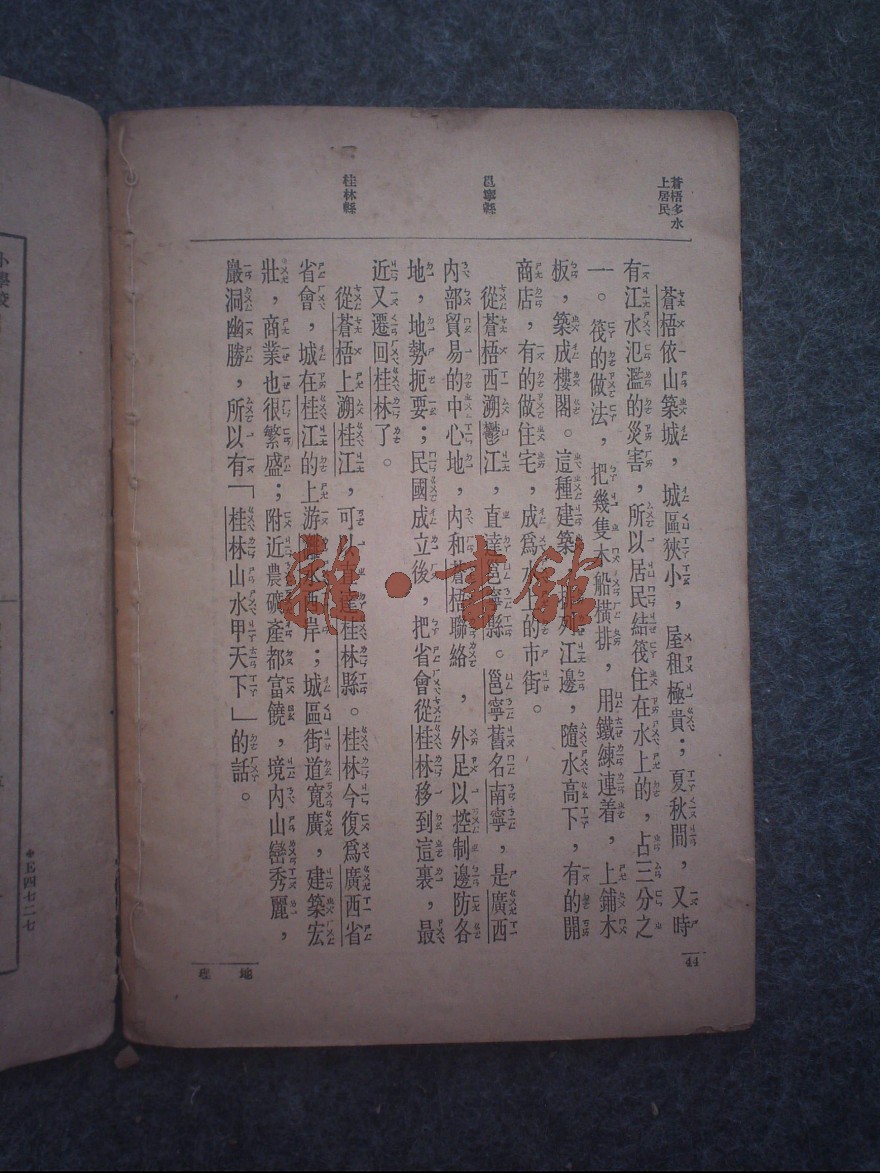 蒼梧多水
上居民
邕寧縣
桂林縣
蒼梧依山築城，城區狹小，屋租極貴；夏秋間，又時
有江水氾濫的災害，所以居民結筏住在水上的，占三分之
一。筏的做法，把幾隻木船橫排，用鐵練連着，上鋪木
板，築成樓閣。這種建築，排列江邊，隨水高下，有的開
商店，有的做住宅，成爲水上的市街。
從蒼梧西溯鬱江，直達邕寧縣。邕寧舊名南寧，是廣西
內部貿易的中心地，內和蒼梧聯絡，外足以控制邊防各
地，地勢扼要；民國成立後，把省會從桂林移到這裏，最
近又遷回桂林了。
從蒼梧上溯桂江，可以直達桂林縣。桂林今復爲廣西省
省會，城在桂江的上游灕水西岸；城區街道寬廣，建築宏
壯，商業也很繁盛；附近農礦產都富饒，境內山巒秀麗，
巖洞幽勝，所以有「桂林山水甲天下」的話。
44
地理
小學校
四七二七
雜·書館